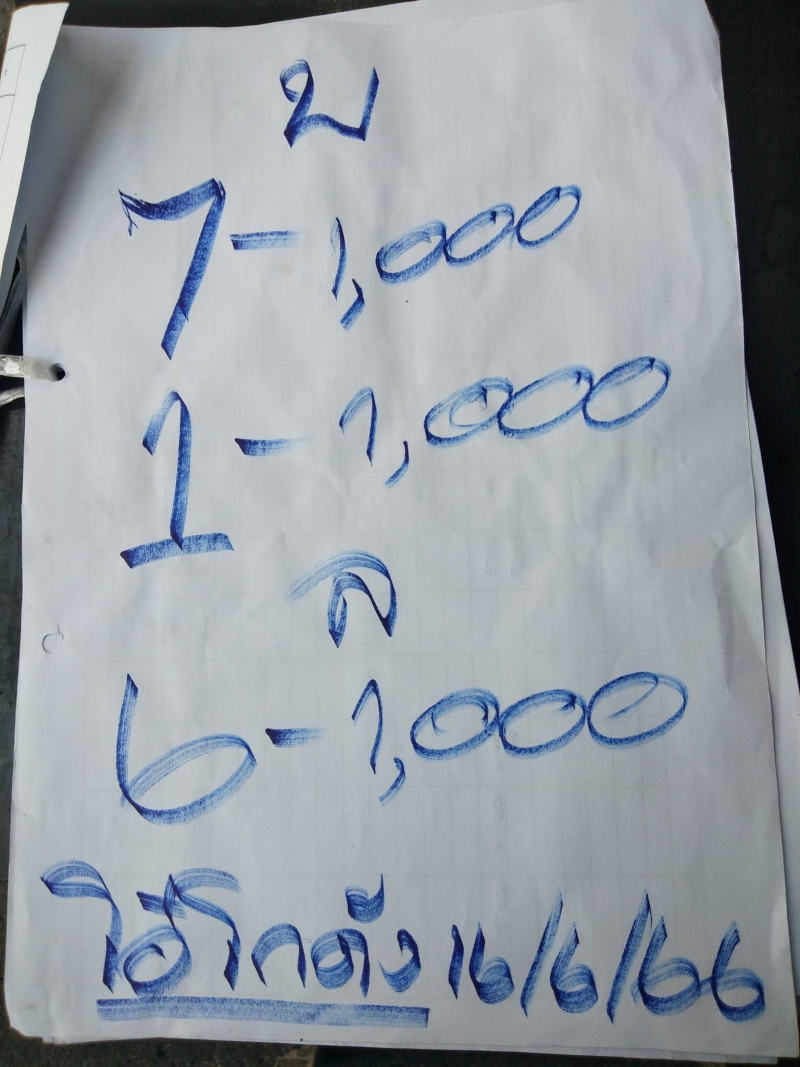 บ
7-1,000
1-1,000
ล
6-1,000
ไอ้โกดัง 16/6/66